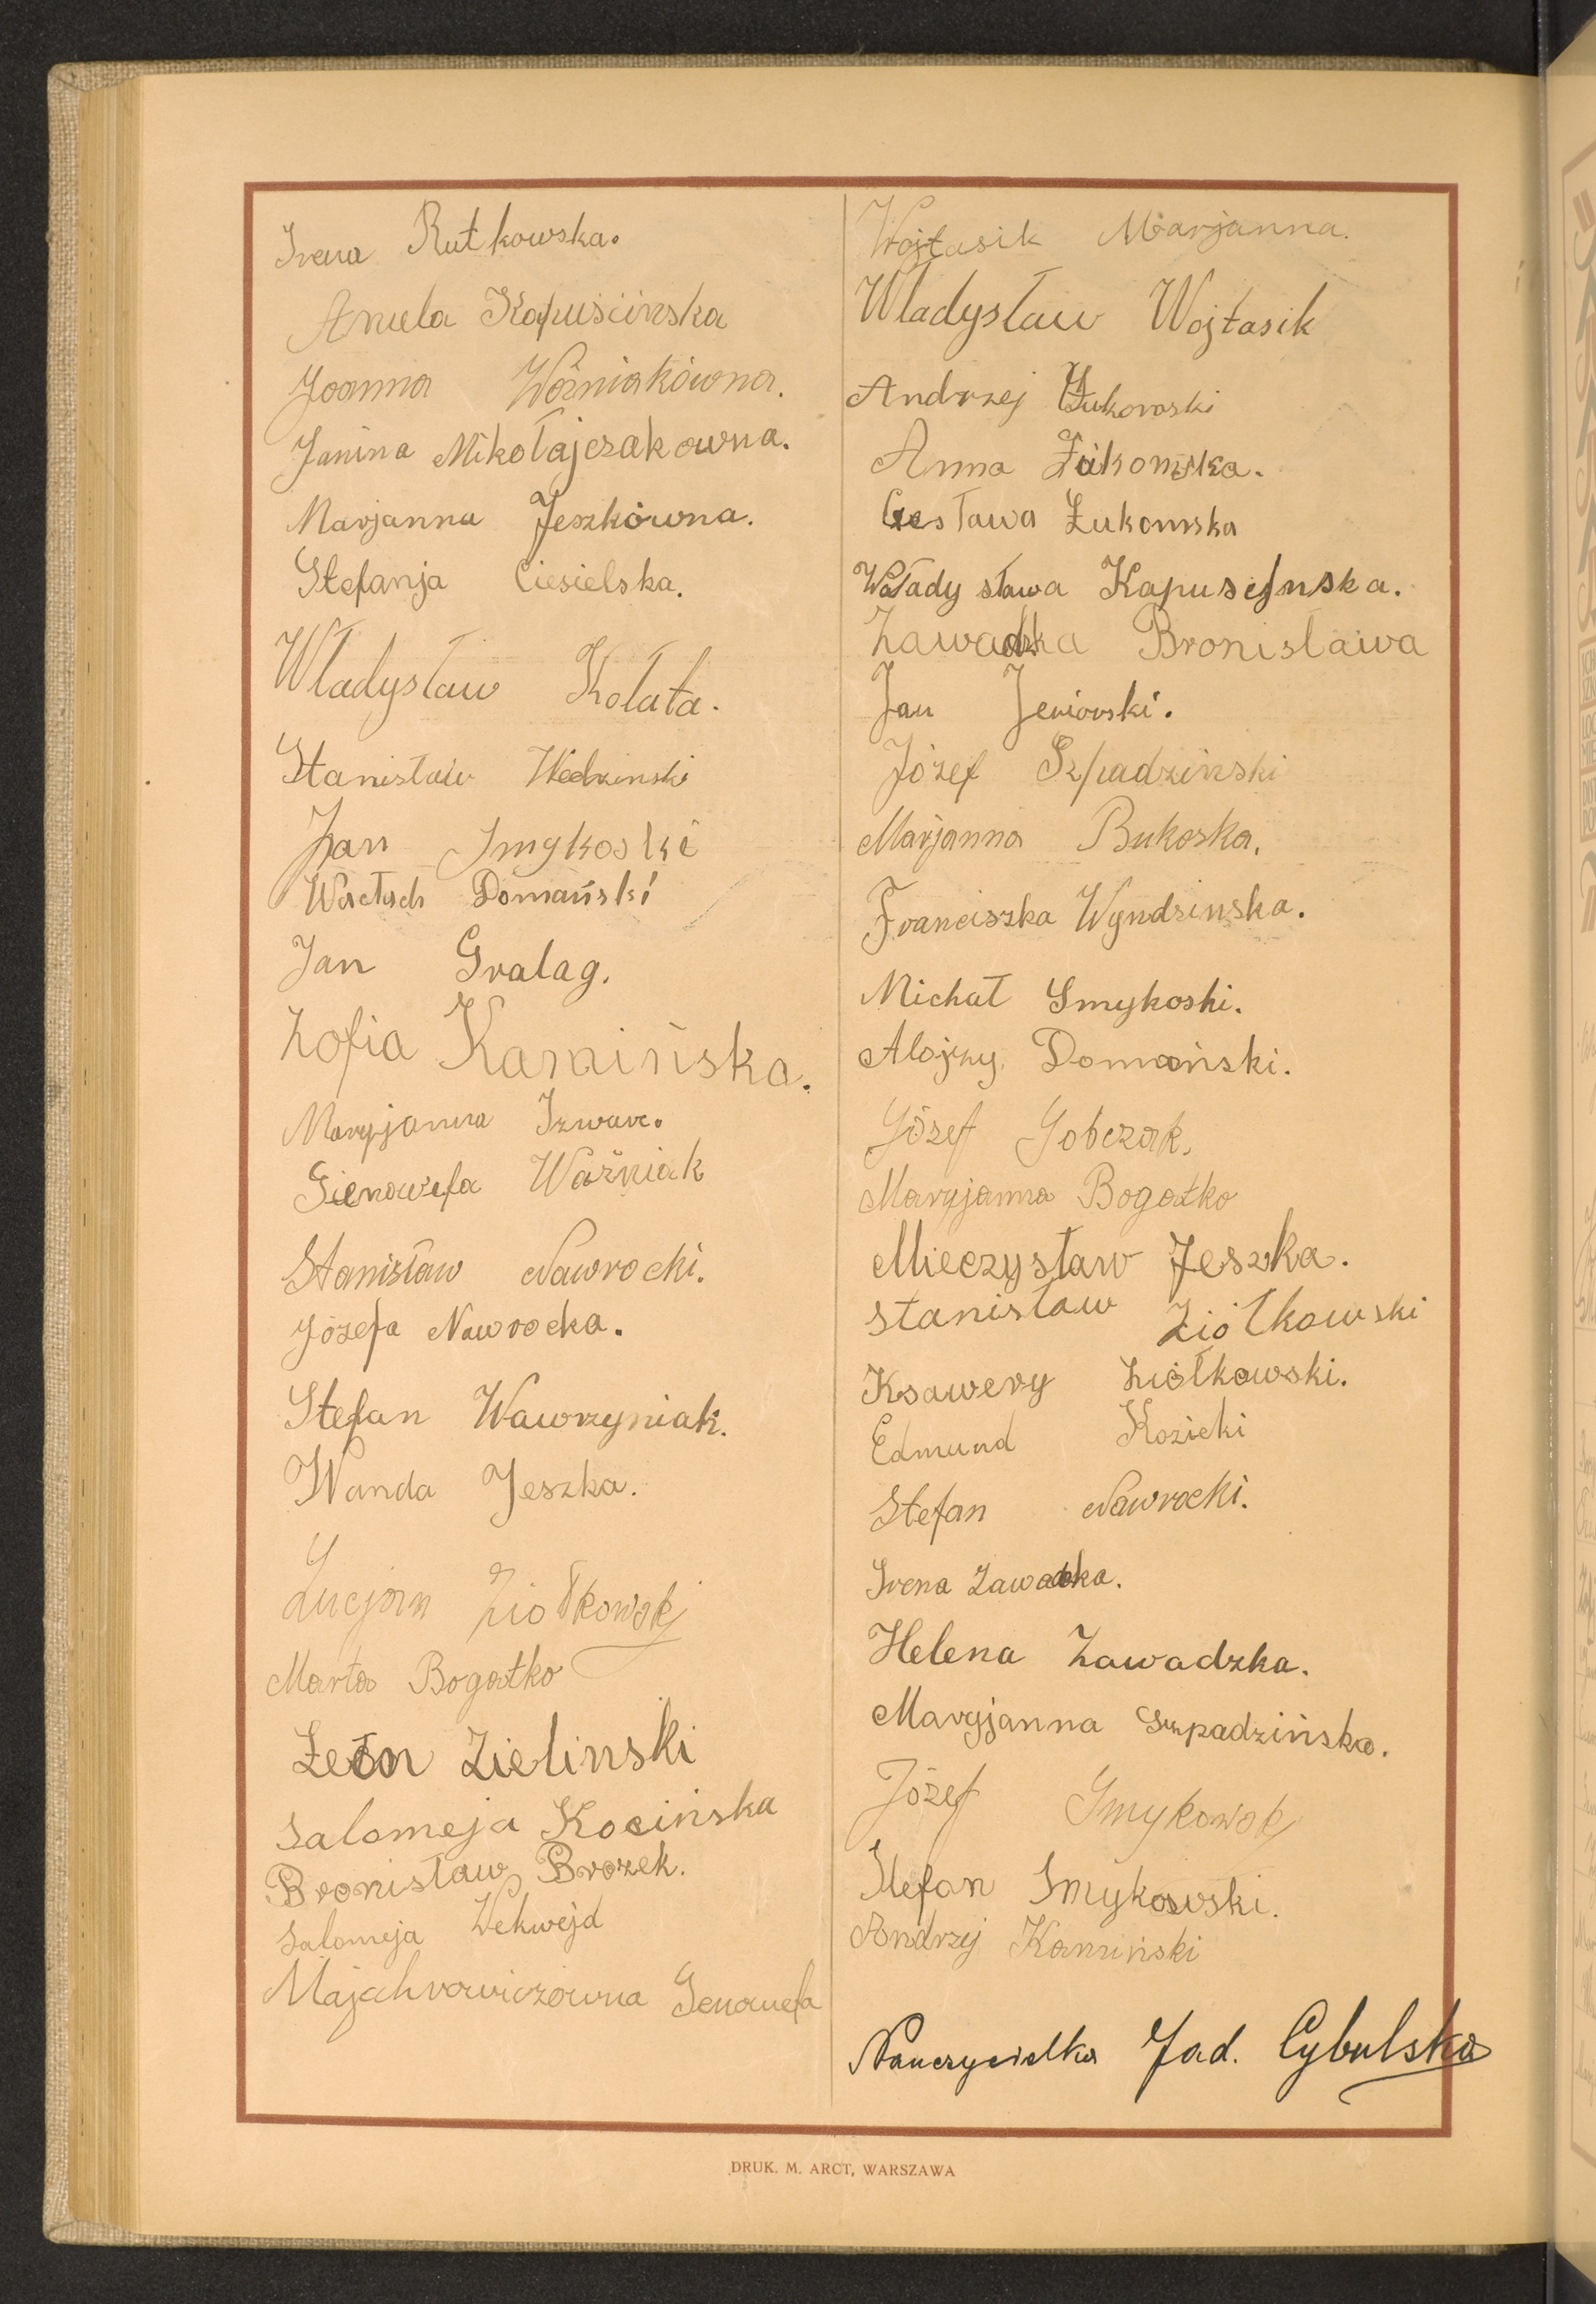 Irena Rutkowska.
Aniela Kapuścińska
Joanna Woźniakówna.
Janina Mikołajczakowna.
Marjanna Jeszkówna.
Stefanja Ciesielska.
Władysław Kołata.
Stanisław Wedzinski
Jan Smykoski
Domański
Jan Gralag.
Zofia Kamińska.
Maryjanna
Gienowefa Woźniak
Stanisław Nawrocki.
Józefa Nawrocka.
Stefan Wawrzyniak.
Wanda Jeszka.
Lucjan Ziołkowski
Marta Bogatko
Leon Zielinski
Salomeja Kocińska
Bronisław Brozek.
Salomeja Wekwejd
Majchrowiczówna Genowefa
Wojtasik Marjanna.
Władysław Wojtasik
Andrzej Żukowski
Anna Żukowska.
Czesława Żukowska
Władysława Kapuscinska.
Zawadzka Bronisława
Jan Jeziorski.
Józef Szpadziński
Marjanna Bukoska.
Franciszka Wyndzinska.
Michał Smykoski.
Alojzy Domański.
Józef Sobczak.
Maryjanna Bogatko
Mieczysław Jeszka.
Stanisław Ziółkowski
Ksawery Ziółkowski.
Edmund Kozicki
Stefan Nawrocki.
Irena Zawadzka.
Helena Zawadzka.
Maryjanna Szpadzińska.
Józef Smykowski
Stefan Smykowski.
Andrzej Kamiński
Nauczycielka Jad. Cybulska
DRUK. M. ARCT, WARSZAWA